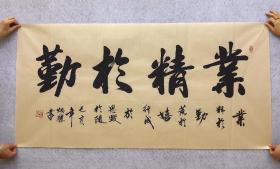 業精於勤
業
精於
勤
荒於
嬉
行成
於
思毀
於随
己亥
年
書